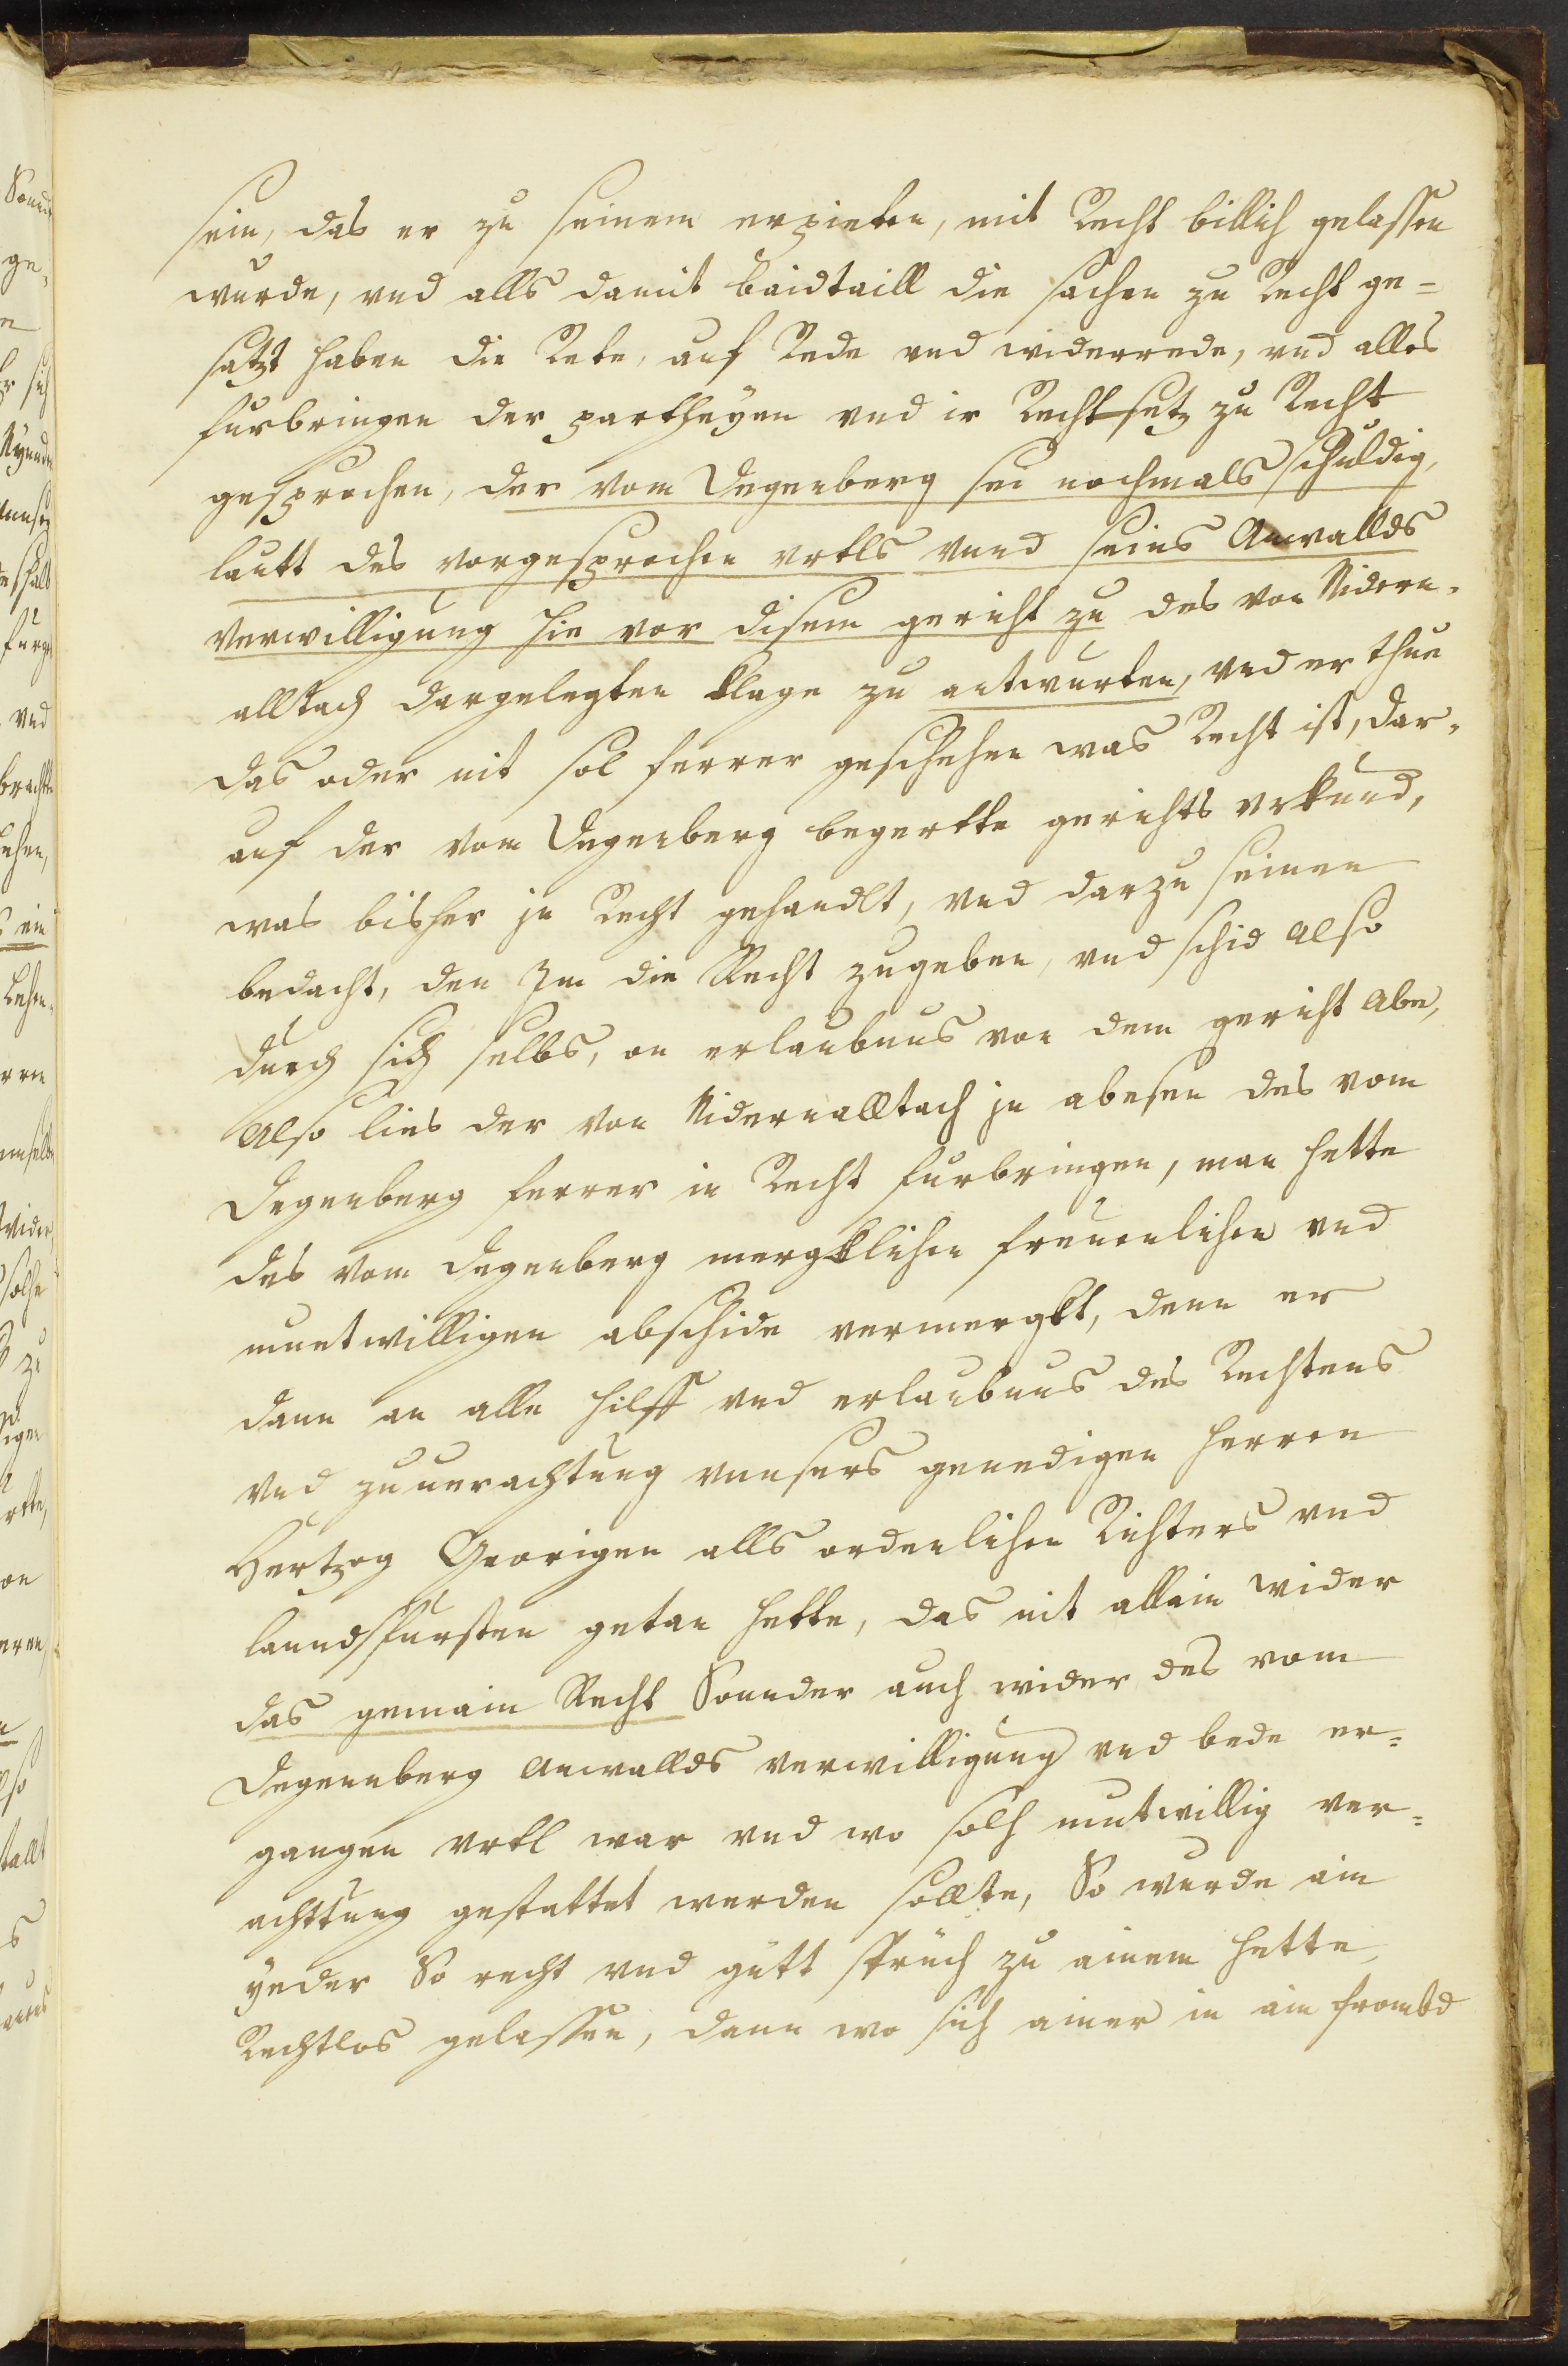 sein, das er zu seinem erpieten, mit Recht billich gelassen
wurde, vnd alls damit baidtaill die sachen zu Recht ge=
satzt haben die Rete, auf Rede vnd widerrede, vnd alles
furbringen der partheyen vnd ir Rechtsetz zu Recht
gesprochen, der vom Degenberg sei nochmals schuldig,
lautt des vorgesprochen vrtls vnnd seins Anwallds
verwilligung hie vor disem gericht zu des von Nidern=
alltach dargelegten klage zu antwurten, vnd er thue
das oder nit sol ferrer geschehen was Recht ist, dar=
auf der vom Degenberg begertte gerichts vrkund,
was bisher in Recht gehandlt, vnd darzu seinen
bedacht, den Im die Recht zugeben, vnd schid also
durch sich selbs, on erlaubnus von dem gericht abe,
Also lies der von Nidernalltach in abesen des vom
Degenberg ferrer in Recht furbringen, man hette
des vom Degenberg mergklichen freuenlichen vnd
muetwilligen abschide vermergkt, denn er
dann an alle hilff vnd erlaubnus des Rechtens
vnd zuuerachtung vnnsers genedigen herren
Hertzog Georigen alls ordenlichen Richters vnd
lanndsfursten getan hette, das nit allain wider
das gemain Recht Sonnder auch wider des vom
Degennberg Anwallds verwilligung vnd bede er=
gangen vrtl war vnd wo solh mutwillig ver=
achttung gestattet werden sollte, So wurde ain
yeder So recht vnd gutt spruch zu ainem hette,
Rechtlos gelassen, dann wo sich ainer in ain frombd